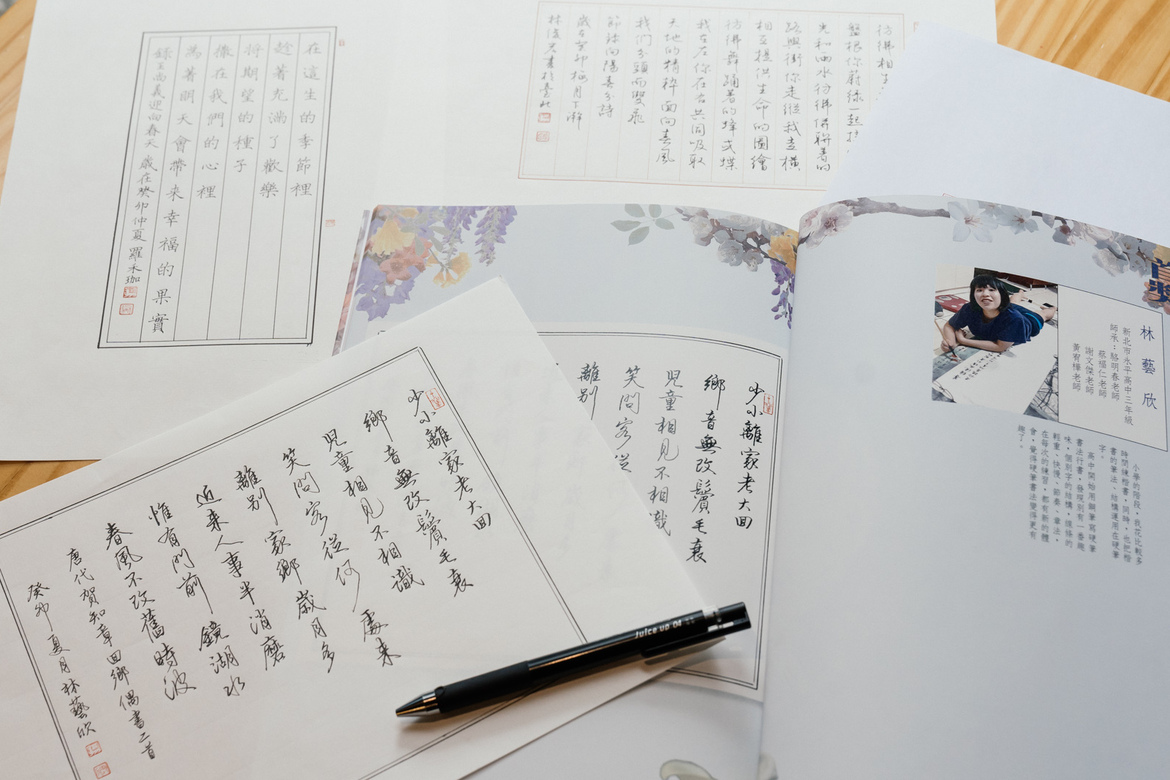 在這生的季節裡
趁著充滿了歡樂
將期望的種子
在我們的心裡
為著明天會帶來幸福的果實
錄王尚義迎向春天 歲在癸卯仲夏 羅禾珈
彷彿相生
盤根你蔚綠一起
光和雨水彷彿
你走縱我立橫
相互提供生命的圖繪
彷彿舞踊著的蜂或蝶
我在左你在右共同吸取
天地的精粹面向春風
我們分頭而雙飛
節錄向陽春分詩
歲在癸卯梅月下澣
書於臺北
少小離家老大回
鄉音無改鬢毛衰
兒童相見不相識
笑問客從何處來
離別家鄉歲月多
近來人事半消磨
惟有門前鏡湖水
春風不改舊時波
唐代賀知章回鄉偶書二首
癸卯夏月林藝欣
少小離家老大回
鄉音無改鬢毛衰
兒童相見不相識
笑問客從
離別
Juice up 04
林藝欣
新北市永平高中三年級
師承：駱明春老師
蔡福仁老師
謝文傑老師
黃宥樺老師
小學的階段，我花比較多
時間練楷書，同時，也把楷
書的筆法、結構運用在硬筆
字。
高中開始用鋼筆寫硬筆
書法行書，發現別有一番趣
味，個別字的結構，線條的
輕重、快慢、節奏、章法，
在每次的練習，都有新的體
會，覺得硬筆書法變得更有
趣了。